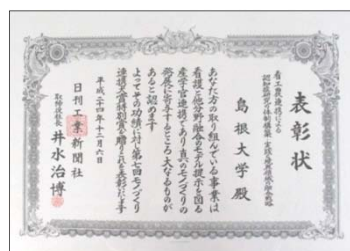 表彰状
島根大学 殿
あなた方の取り組んでいる事業は
看護と他分野融合のモデル提示を図る
産学官連携であり真のモノづくりの
発展に寄与するところ大なるものが
あると認めます
よってその功績に対し第七回モノづくり
連携大賞特別賞を贈りこれを表彰します
平成二十四年十二月六日
日刊工業新聞社
取締役社長 井水治博